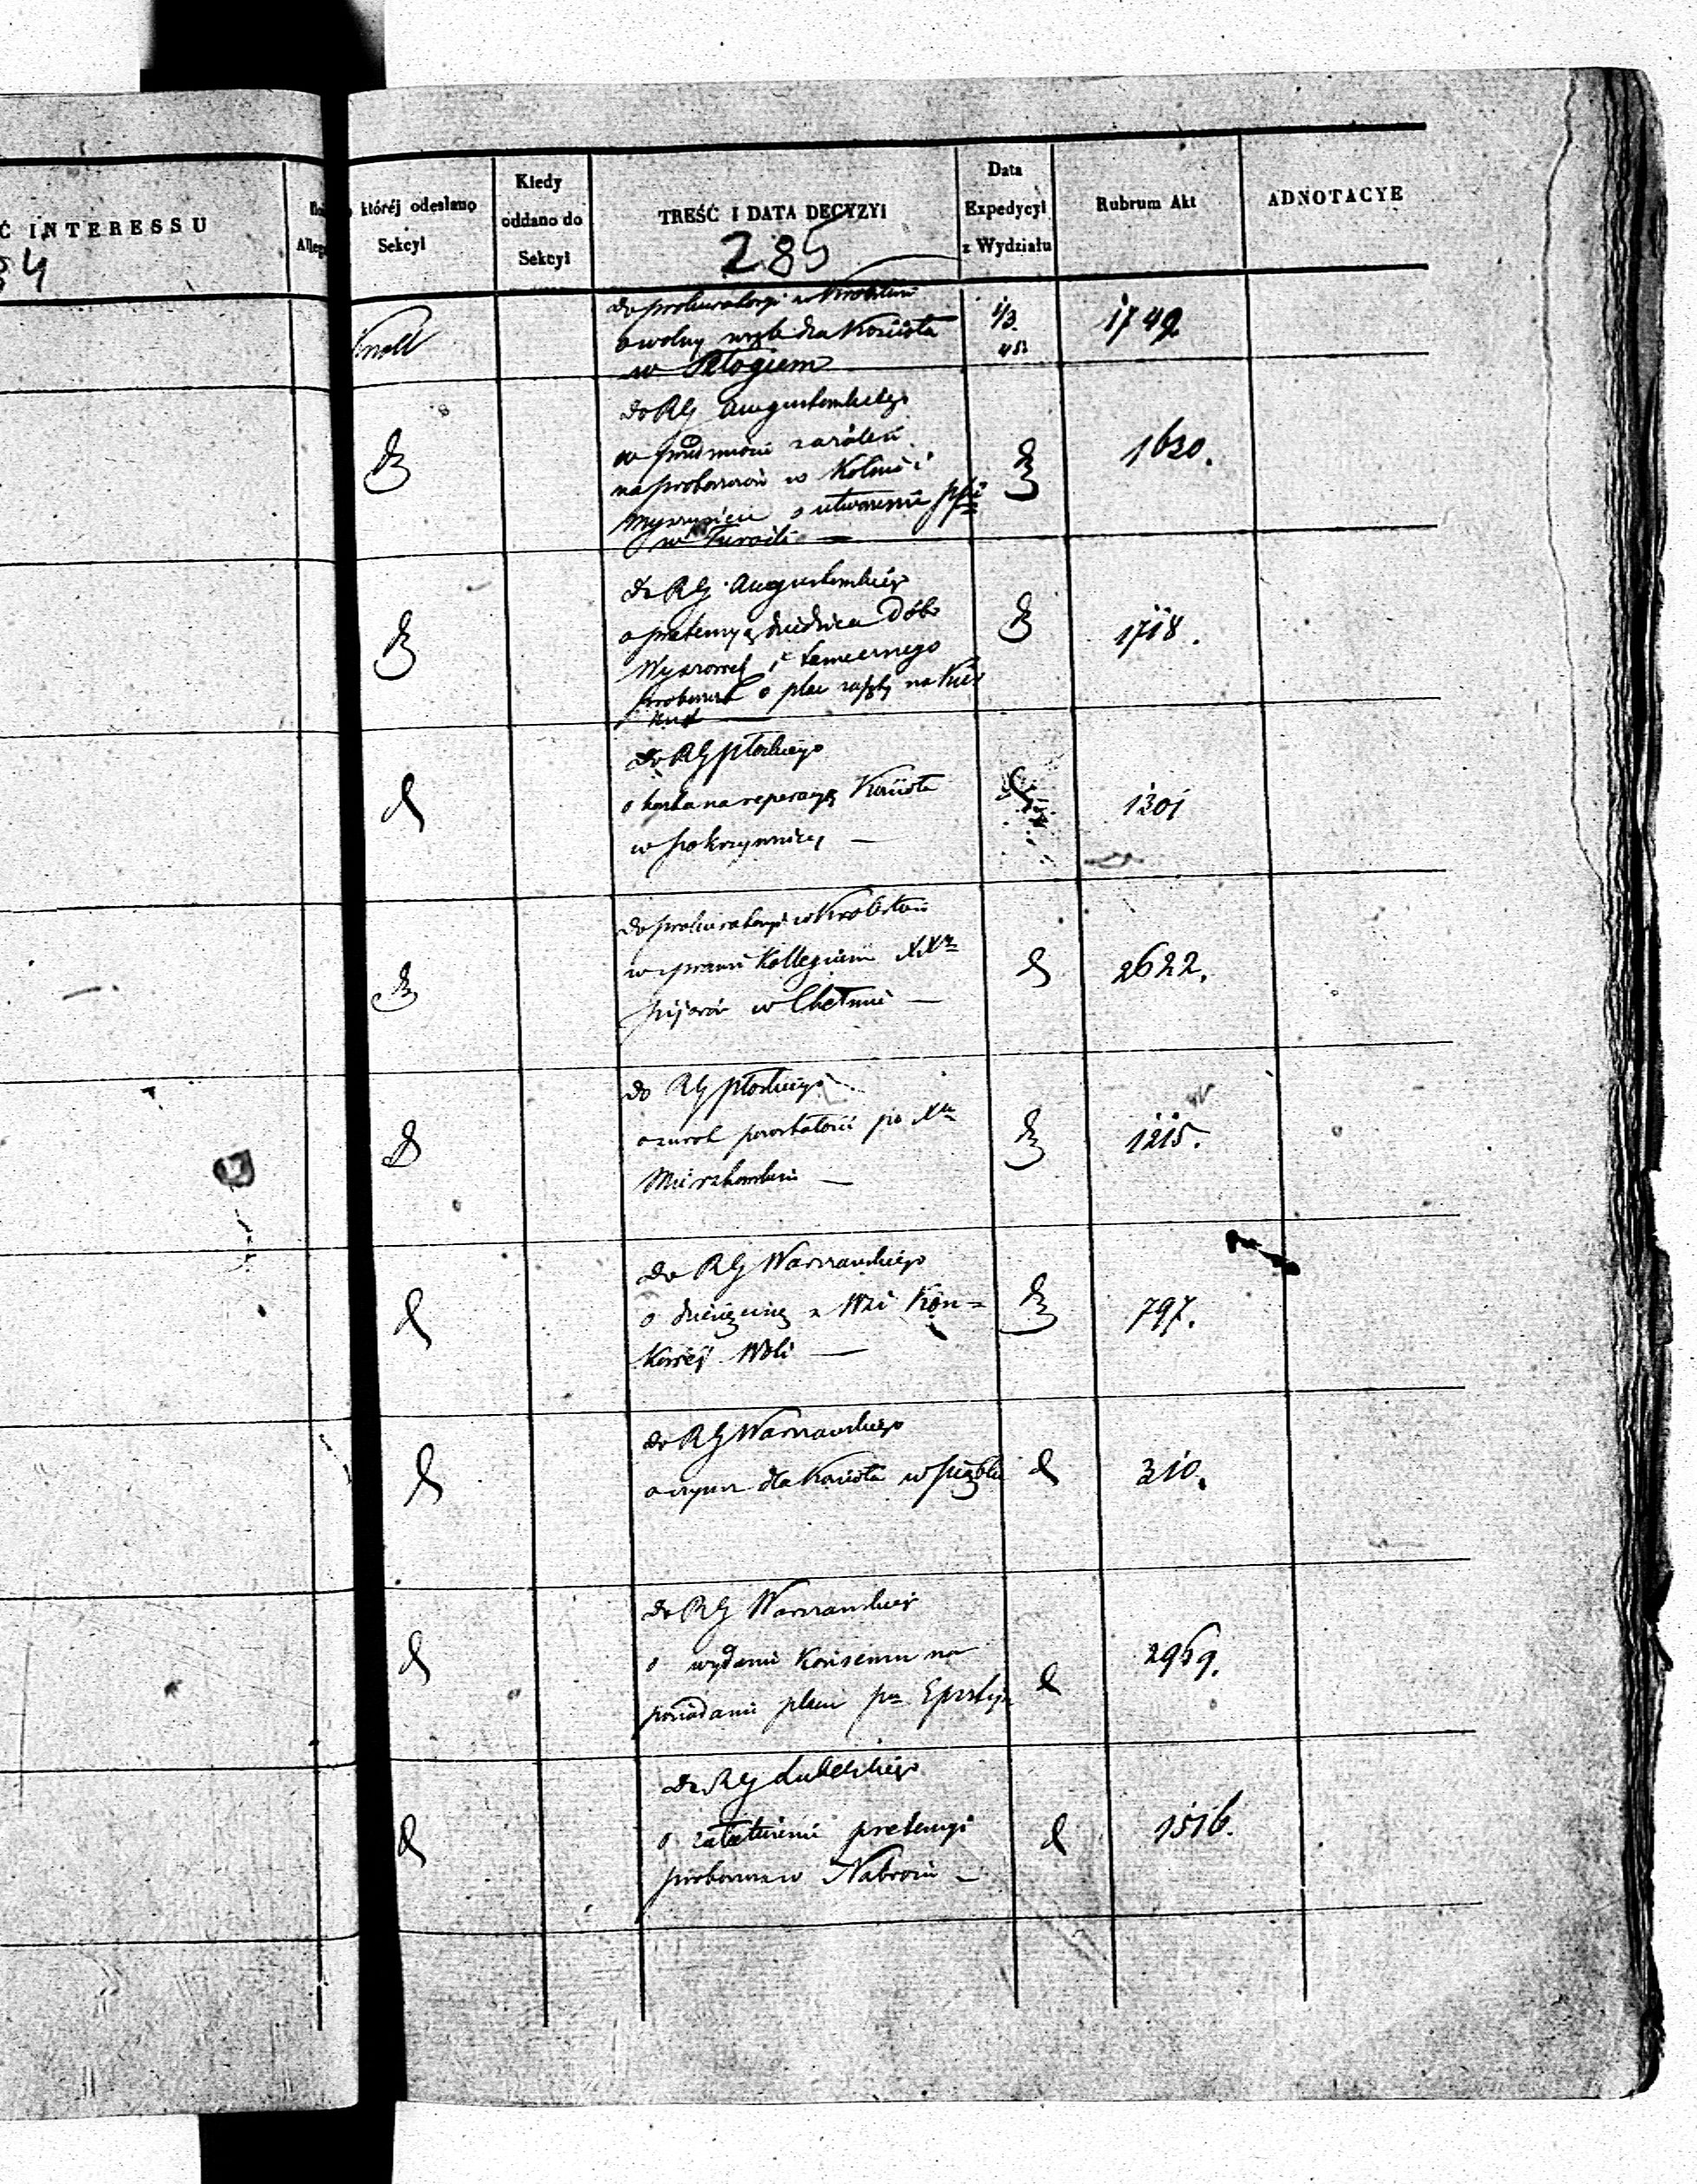 Ć INTERESSU
84
któréj odesłano
Sekcyi
Kiedy
oddano do
Sekcyi
TREŚĆ I DATA DECYZYI
285
Data
Expedycyi
z Wydziału
Rubrum Akt
ADNOTACYE
do prokuratoryi w Królestwie
o wolny wręb dla Kościoła
w
1/3
1749
do RG Augustowskiego
w przedmiocie zażaleń
na proboszczów w Kolnie i
Myszyńcu o utworzenie
w Turośli —
1620.
do RG Augustowskiego
o pretensyą dziedzica Dóbr
i tamecznego
o plac zajęty na
1718.
do RG Płockiego
o na reperacyą Kościoła
w Pokrzywnicy —
1301
do prokuratoryi w Królestwie
w sprawie Kollegium XX
pijarów w Chełmie —
2622.
do RG Płockiego
po X
—
1215.
do RG Warszawskiego
o dziesięcinę z Wsi Kon=
Woli —
797.
do RG Warszawskiego
o czynsz dla Kościoła w Piątku
310.
do RG Warszawskiego
o wydanie Konsensu na
posiadanie placu
2969.
do RG Lubelskiego
o załatwienie pretensyi
proboszcza w Nabrożu —
1516.